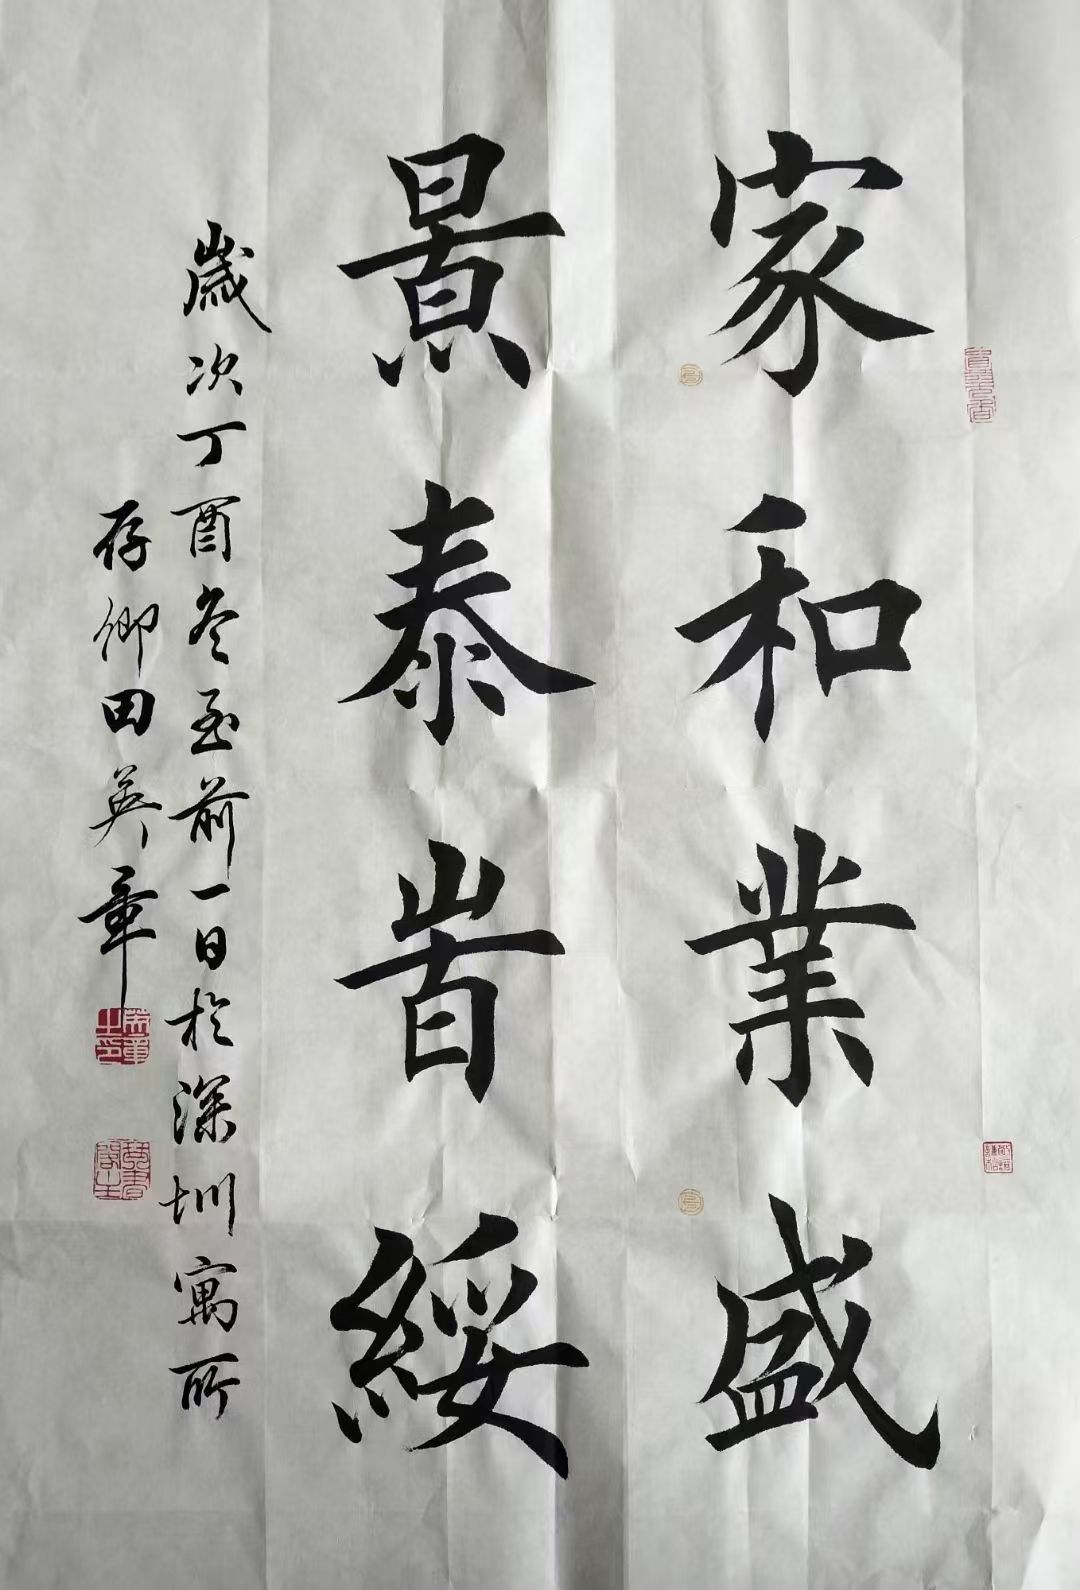 家和業盛
景泰旹綏
歲次丁酉冬至前一日於深圳寓所
存卿田英章
英章之印